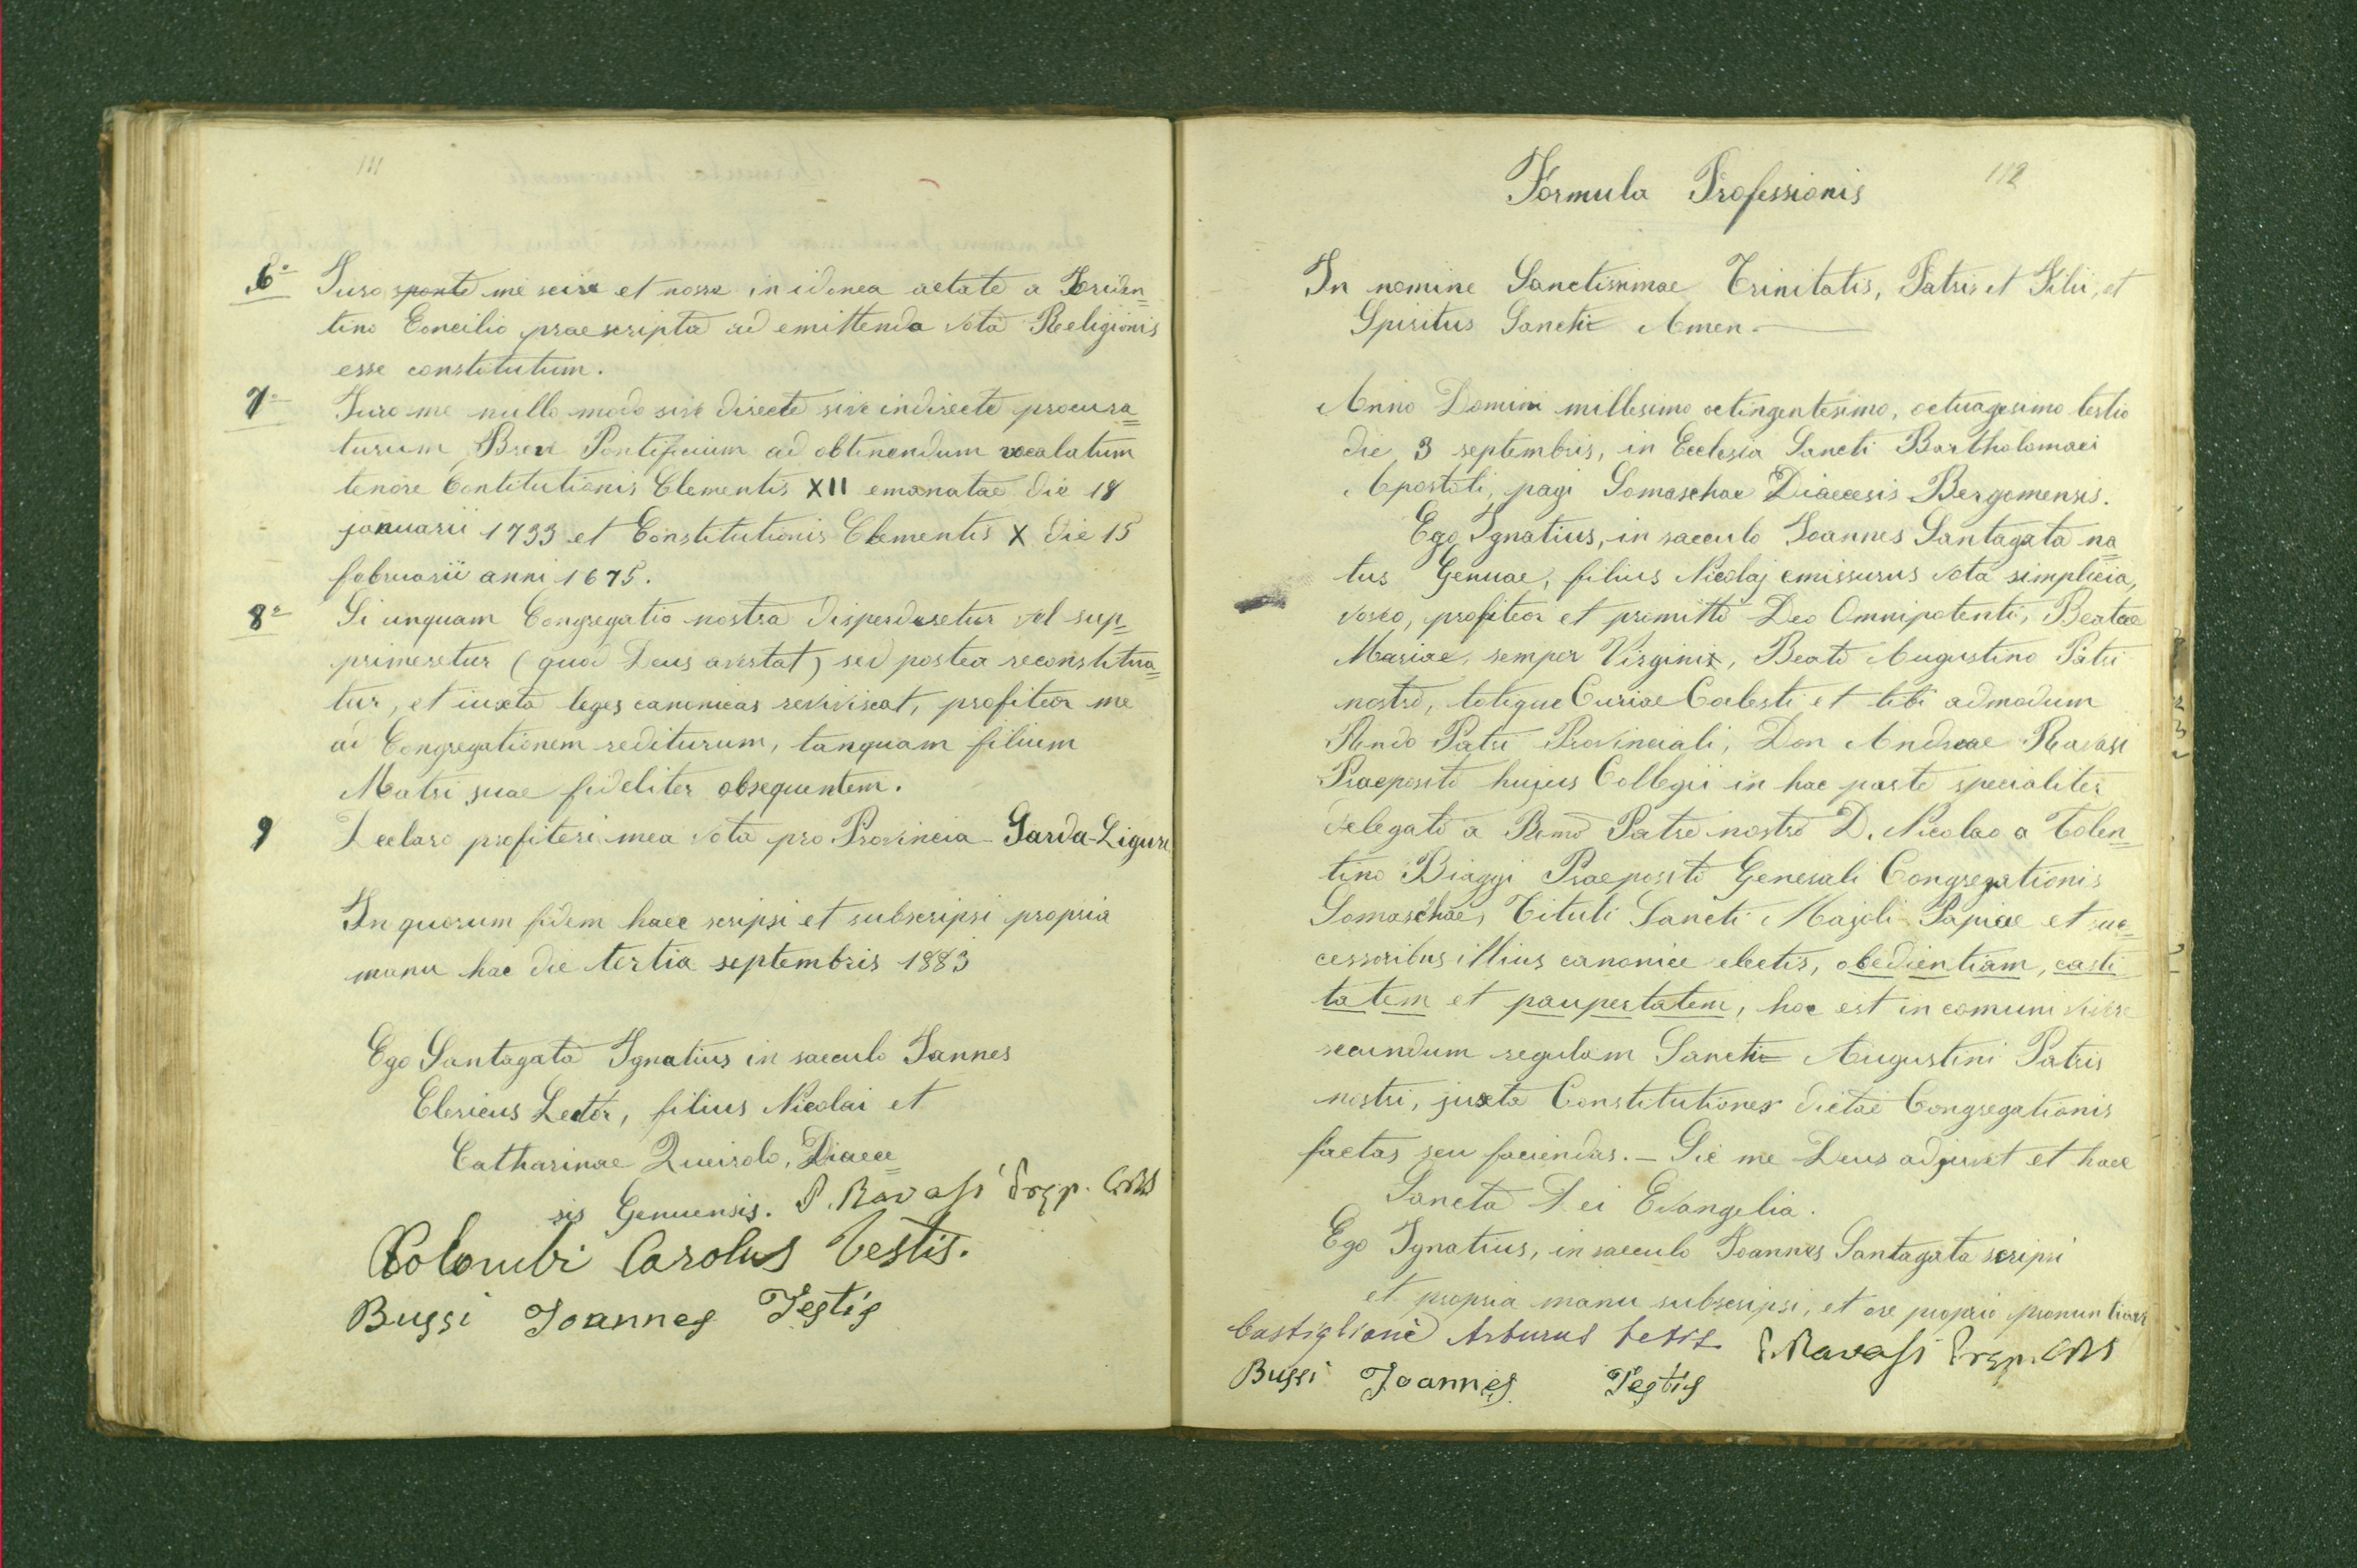 111
6º Iuro sponte me scire et nosse in idonea aetate a Triden=
tino Concilio praescripta ad emittenda vota Religionis
esse constitutum.
7º Juro me nullo modo sive directe sive indirecte procura=
turum Breve Pontificium ad obtinendum vocalatum
tenore Contitutionis Clementis XII emanatae die 18
januarii 1733 et Constitutionis Clementis X die 15
februarii anni 1675.
8º Si unquam Congregatio nostra disperderetur vel sup=
primeretur (quod Deus avertat) sed postea reconstitua=
tur, et iuxta leges canonicas reviviscat, profiteor me
ad Congregationem rediturum, tanquam filium
Matri suae fideliter obsequentem.
9 Declaro profiteri mea vota pro Provincia Sarda-Ligure
In quorum fidem haec scripsi et subscripsi propria
manu hac die tertia septembris 1883
Ego Santagata Ignatius in saeculo Iannes
Clericus Lector, filius Nicolai et
Catharinae Queirolo, Diaece=
sis Genuensis. P. Ravasi Prep. CRS
Colombi Carolus Testis.
Bussi Joannes Testis
112
Formula Professionis
In nomine Sanctissimae Trinitatis, Patris et Filii, et
Spiritus Sancti Amen.
Anno Domini millesimo octingentesimo, octuagesimo tertio
die 3 septembris, in Ecclesia Sancti Bartholomaei
Apostoli, pagi Somaschae Diaecesis Bergomensis.
Ego Ignatius, in saeculo Joannes Santagata na=
tus Genuae, filius Nicolaj emissurus vota simplicia,
voveo, profiteor et promitto Deo Omnipotenti, Beatae
Mariae, semper Virgini, Beato Augustino Patri
nostro, totique Curiae Coelesti et tibi admodum
Rndo Patri Provinciali, Don Andreae Ravasi
Praeposito hujus Collegii in hac parte specialiter
delegato a Rmo Patre nostro D. Nicolao a Tolen=
tino Biaggi Praeposito Generali Congregationis
Somaschae, Tituli Sancti Majoli Papiae et suc=
cessoribus illius canonice electis, obedientiam, casti
tatem et paupertatem, hoc est in comuni vivere
secundum regulam Sancti Augustini Patris
nostri, juxta Constitutiones dictae Congregationis
factas seu faciendas. – Sic me Deus adjuvet et haec
Sancta Dei Evangelia.
Ego Ignatius, in saeculo Joannes Santagata scripsi
et propria manu subscripsi, et ore proprio pronuntiavi
Castiglioni Arturus testis P. Ravasi Prep. CRS
Bussi Joannes Testis